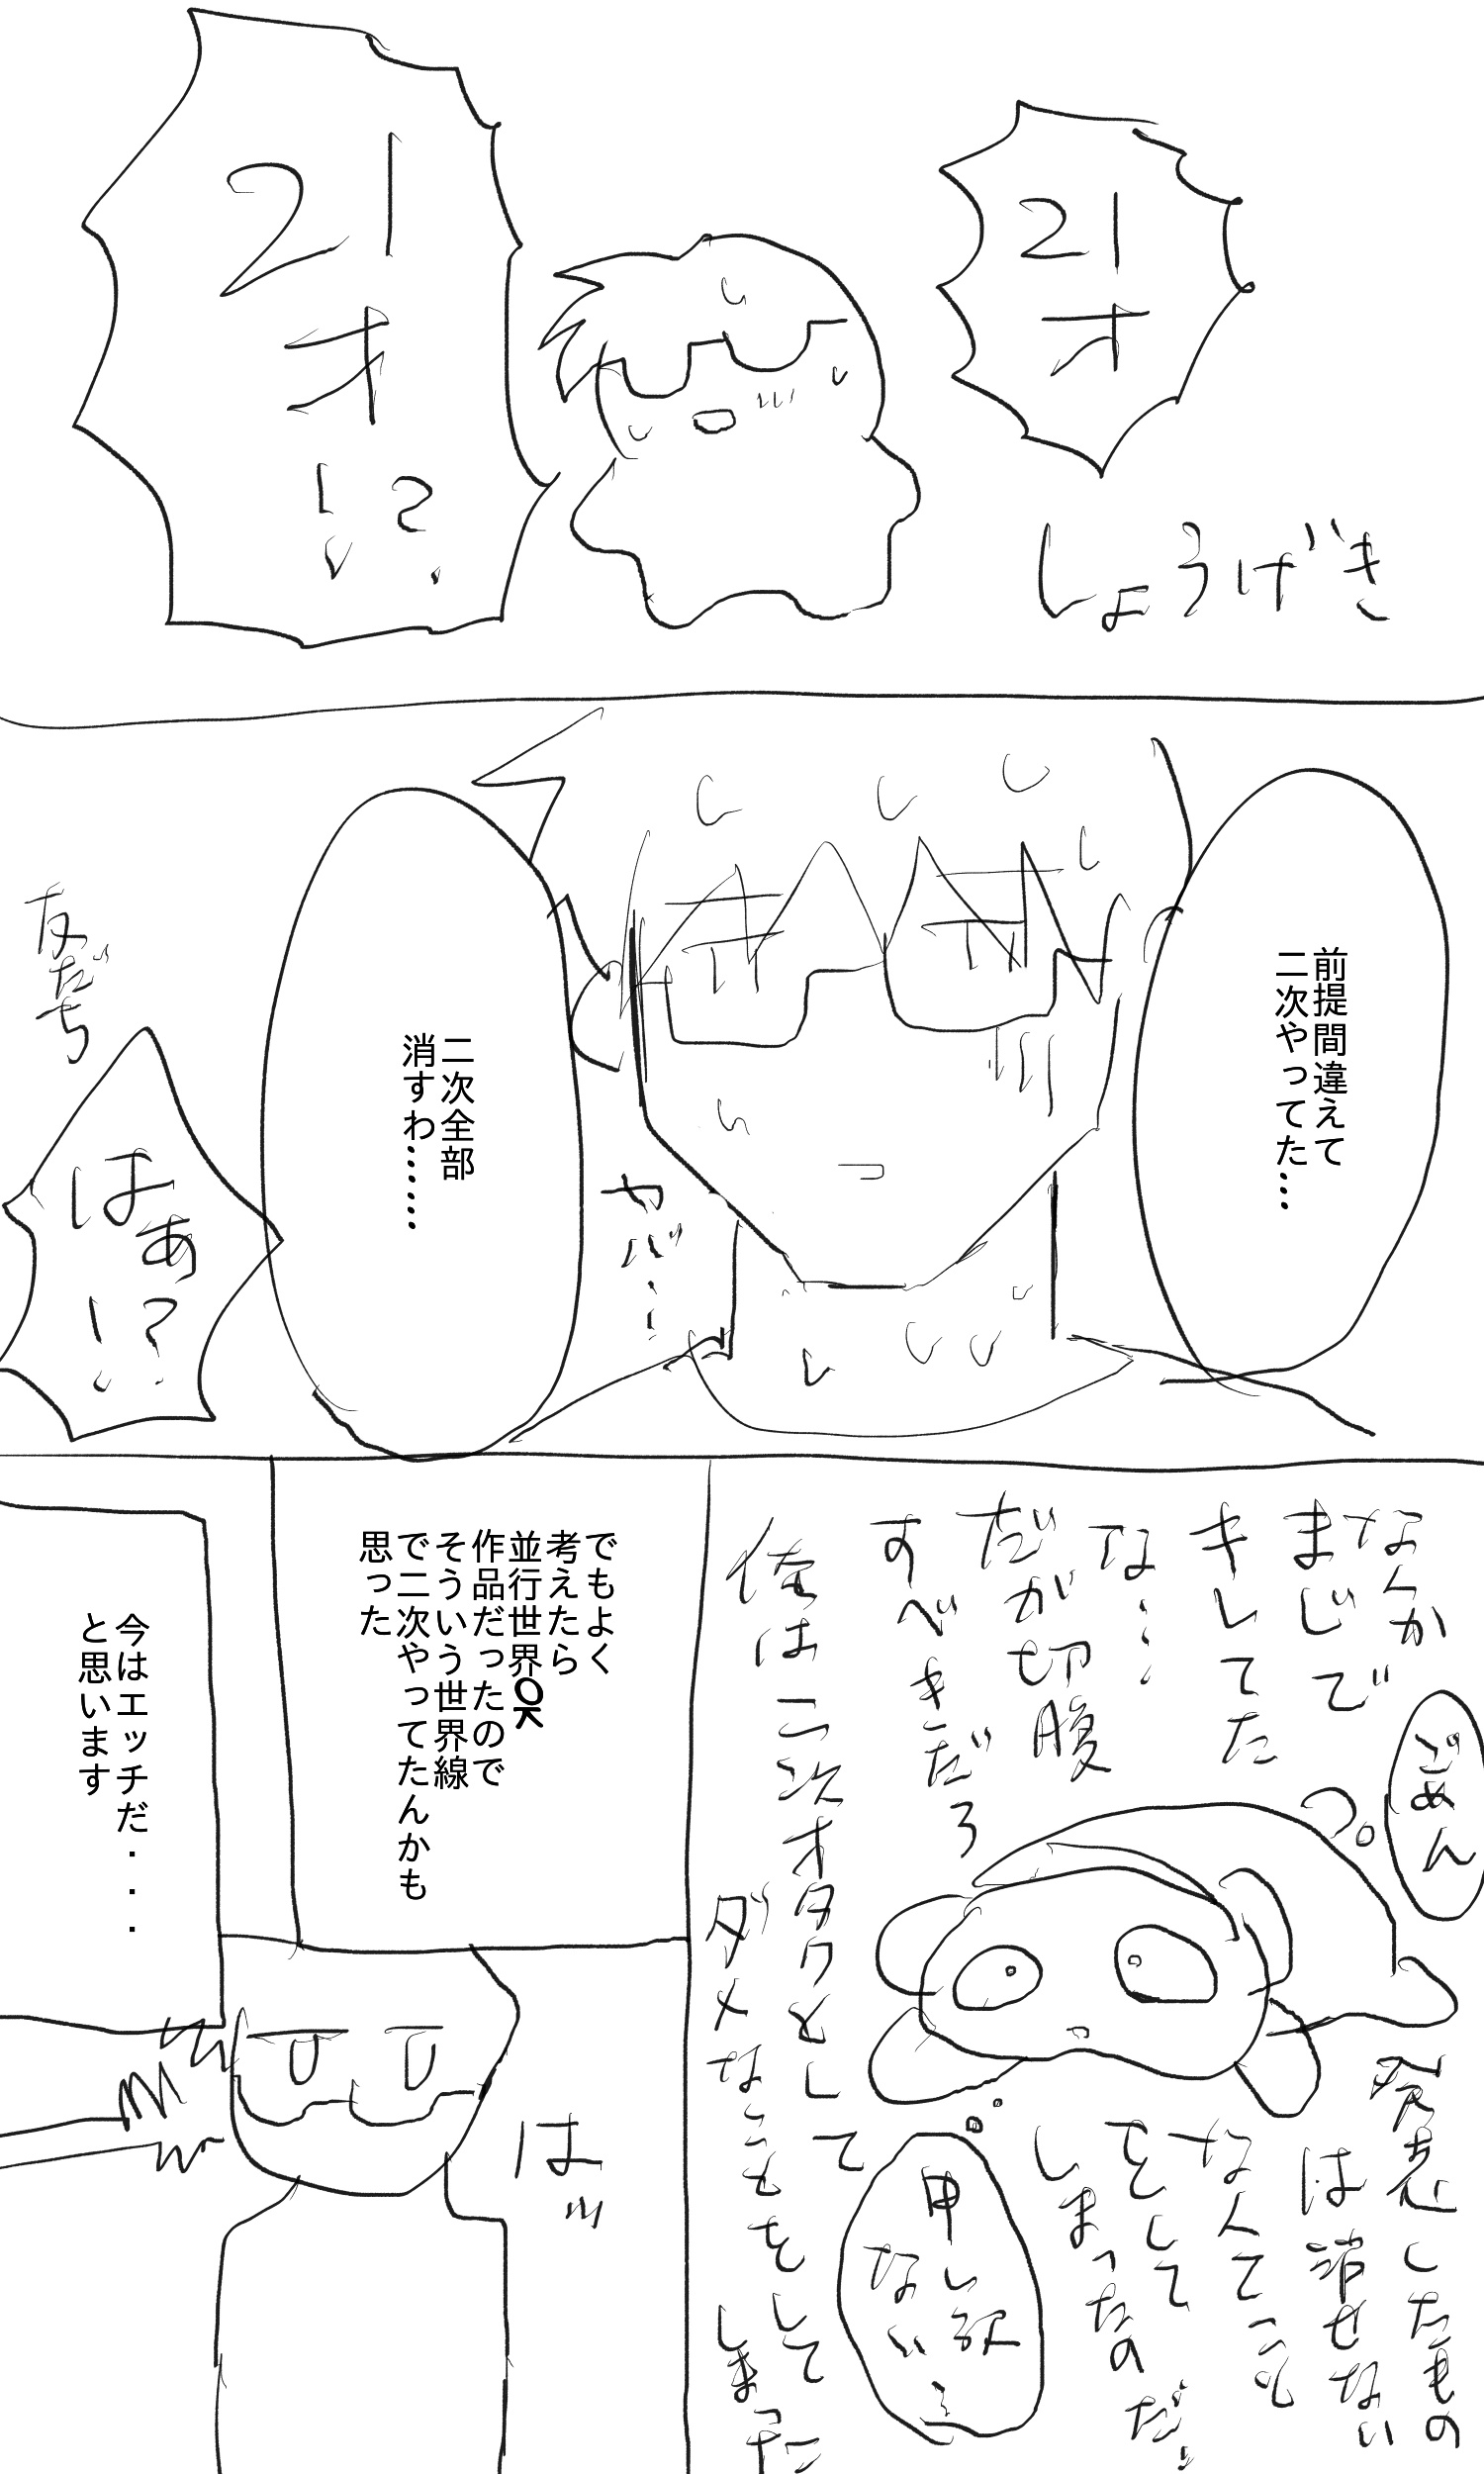 21才
しょうげき
21才!?
前提間違えて
二次やってた…
ヤバ…
二次全部
消すわ……
友だち
はぁ!?
なんか
まじで
キレてた
な…
だが切腹
すべきだろ
ごめん
俺は二次オタクとして
ダメなことをしてしまった
発売したもの
は消せない
なんてこと
をして
しまったのだ
申し訳
ない
でもよく
考えたら
並行世界OK
作品だったので
そういう世界線
で二次やってたんかも
思った
はッ
今はエッチだ...
と思います